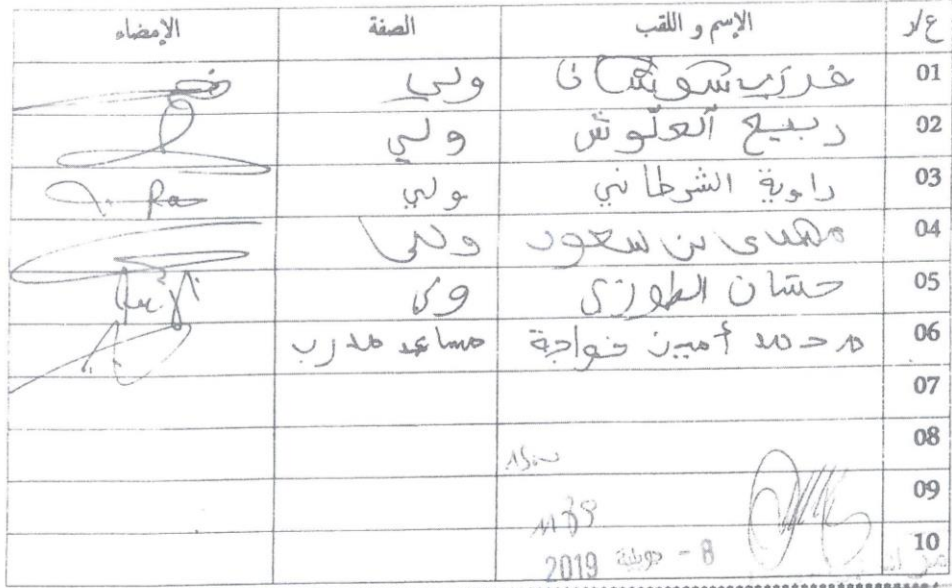 ع/د الإسم و اللقب الصفة الإمضاء
01 ولي
02 ربيع العلوش ولي
03 راوية الشرطاني ولي
04 مهدي بن سعود ولي
05 حسان الطورزي ولي
06 محمد أمين خواجة مساعد مدرب
07
08
09
10
8 - جويلية 2019